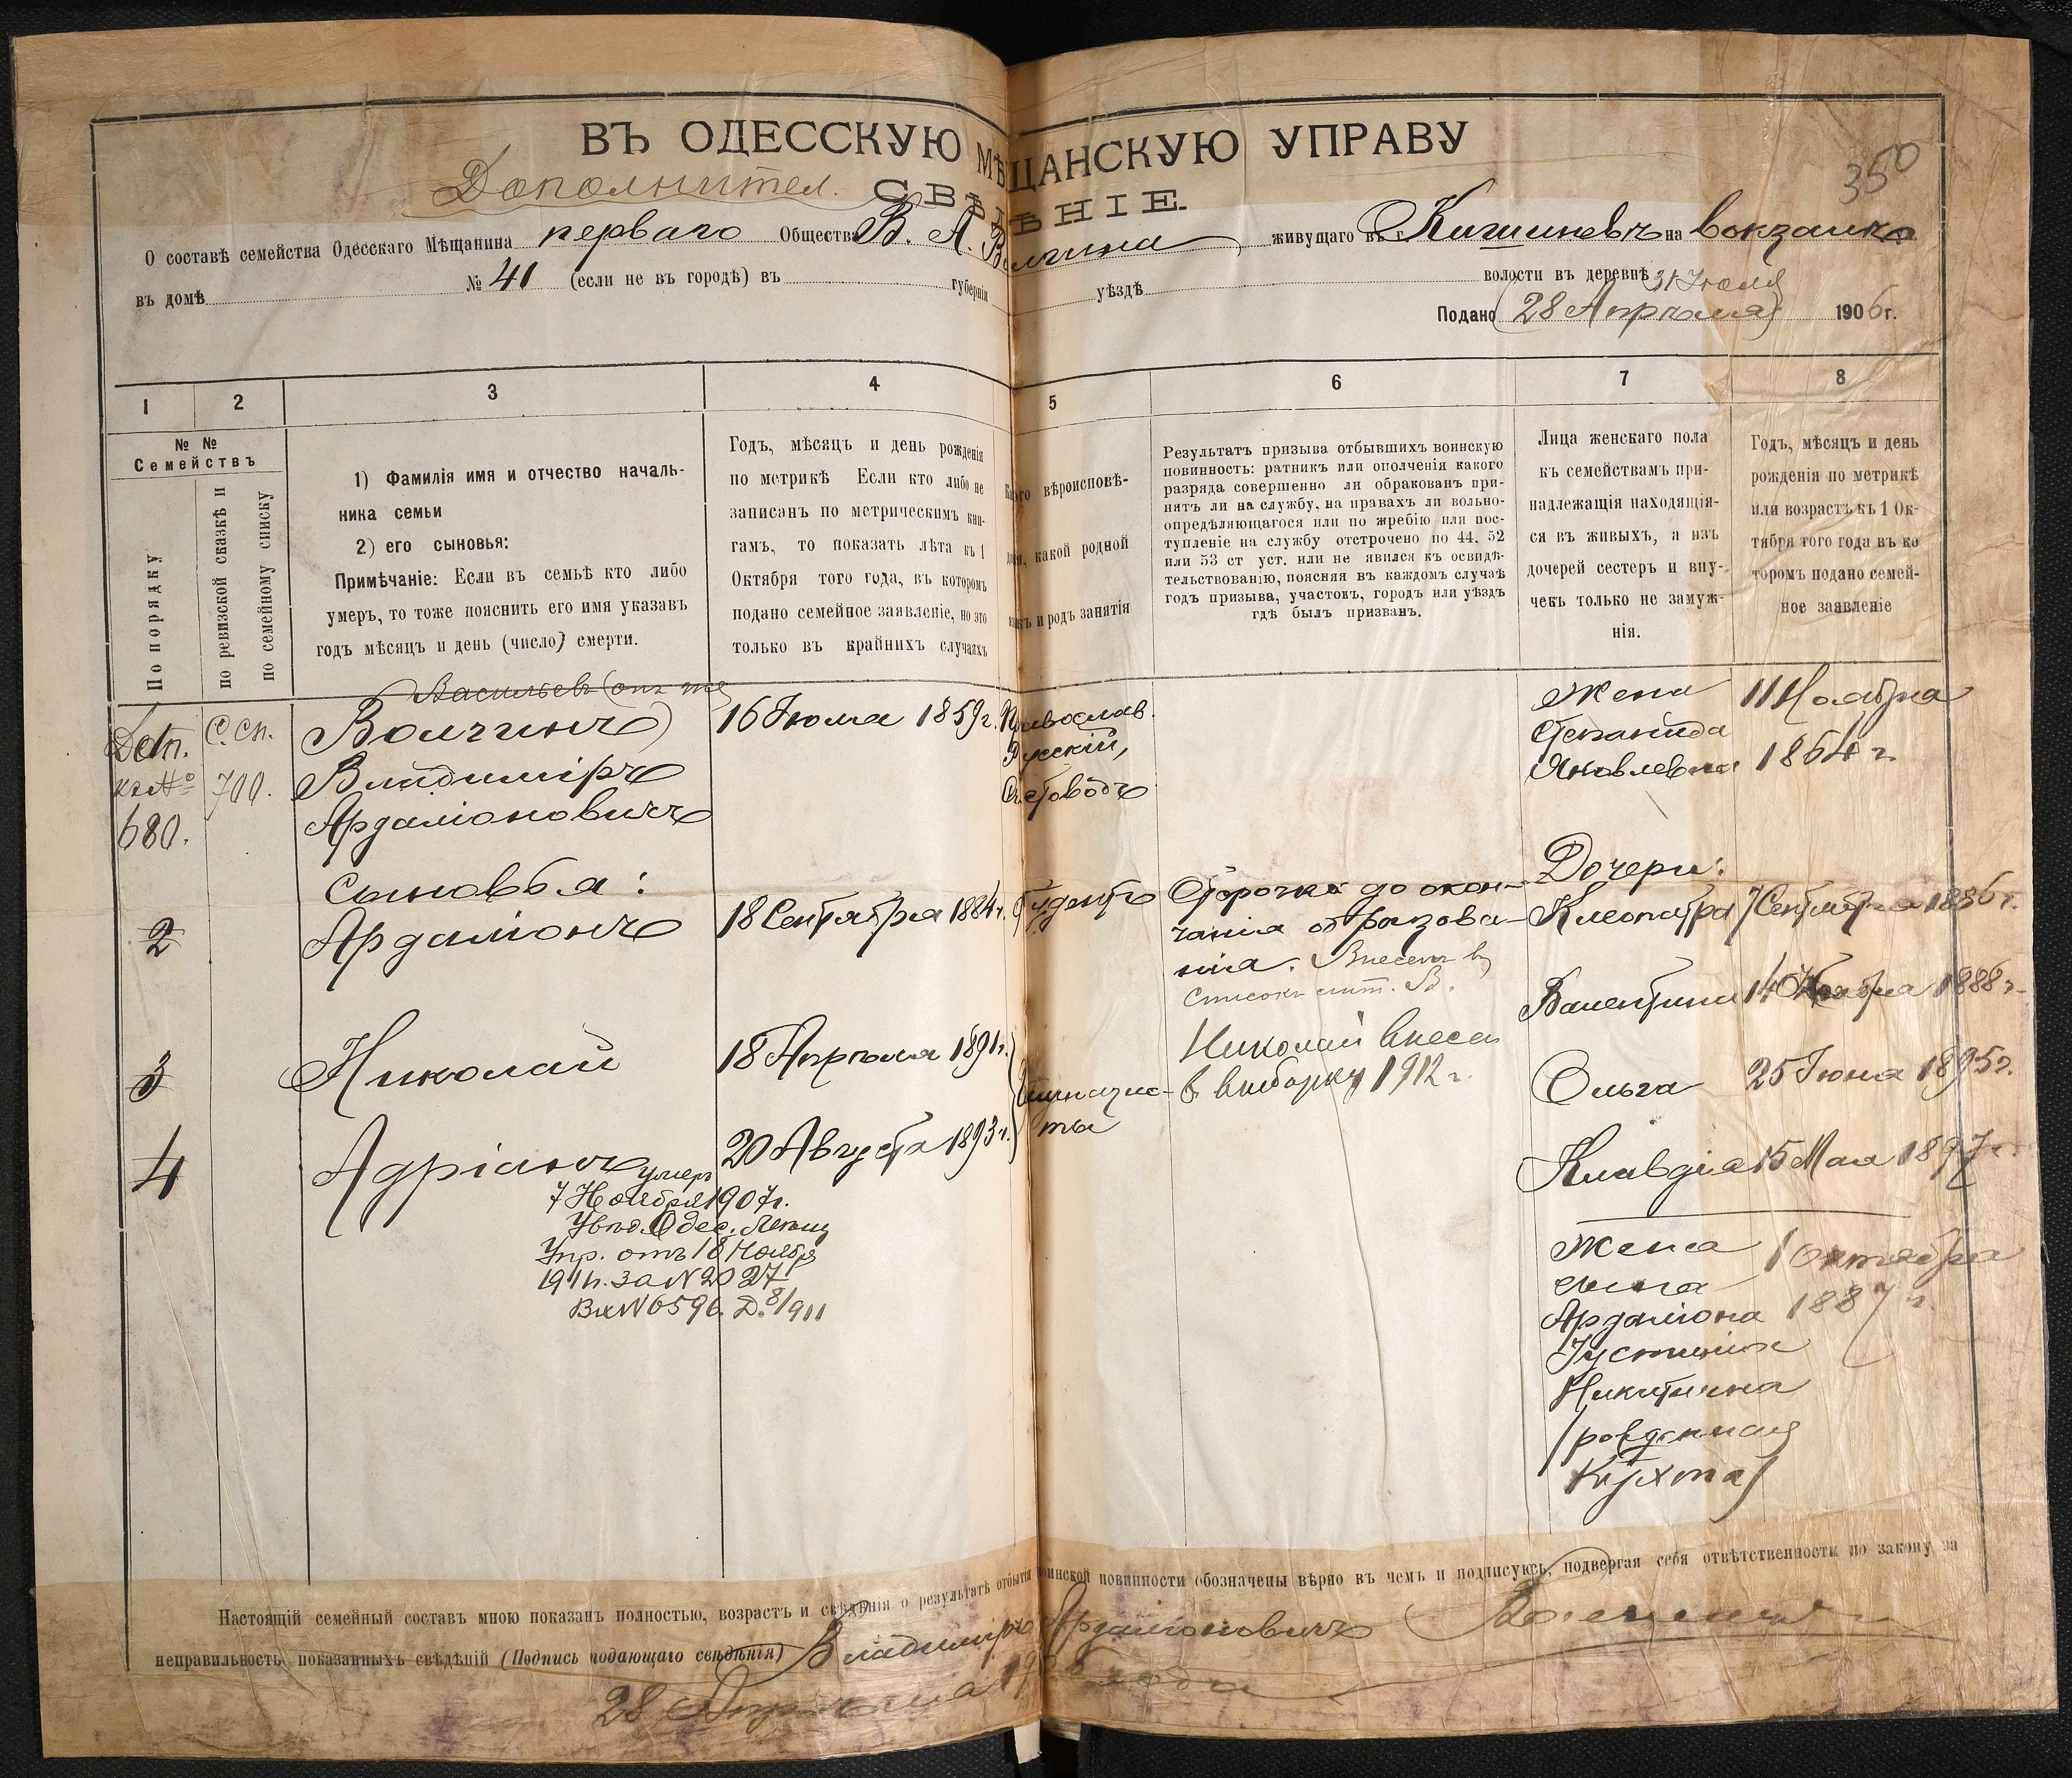 ВЪ ОДЕССКУЮ МѢЩАНСКУЮ УПРАВУ
350
Дополнител. СВѢДѢНІЕ.
О составѣ семейства Одесскаго Мѣщанина перваго Общества В. А. Волчина живущаго въ г. Кишиневѣ на вокзалѣ
въ домѣ № 41 (если не въ городѣ) въ губерніи уѣздѣ волости въ деревнѣ
31 Іюля
Подано (28 Апрѣля) 1906 г.
1 2 3 4 5 6 7 8
№ №
Семействъ
По порядку
по ревизской сказкѣ и
по семейному списку
1) Фамилія имя и отчество началь-
ника семьи
2) его сыновья:
Примѣчаніе: Если въ семьѣ кто либо
умеръ, то тоже пояснить его имя указавъ
годъ мѣсяцъ и день (число) смерти.
Годъ, мѣсяцъ и день рожденія
по метрикѣ Если кто либо не
записанъ по метрическимъ кни-
гамъ, то показать лѣта къ 1
Октября того года, въ которомъ
подано семейное заявленіе, но это
только въ крайнихъ случаяхъ
Какого вѣроисповѣ-
данія, какой родной
языкъ и родъ занятія
Результатъ призыва отбывшихъ воинскую
повинность: ратникъ или ополченія какого
разряда совершенно ли обракованъ при-
нятъ ли на службу, на правахъ ли вольно-
опредѣляющагося или по жребію или пос-
тупленіе на службу отстрочено по 44, 52
или 53 ст уст. или не явился къ освидѣ-
тельствованію, поясняя въ каждомъ случаѣ
годъ призыва, участокъ, городъ или уѣздъ
гдѣ былъ призванъ.
Лица женскаго пола
къ семействамъ при-
надлежащія находящія-
ся въ живыхъ, а изъ
дочерей сестеръ и вну-
чекъ только не замуж-
нія.
Годъ, мѣсяцъ и день
рожденія по метрикѣ
или возрастъ къ 1 Ок-
тября того года въ ко
торомъ подано семей-
ное заявленіе
Доп.
къ №
680.
С. Сп.
700.
Васильевъ (онъ же
Волчинъ)
Владиміръ
Ардаліоновичъ
16 Іюля 1859 г.
Православ.
Русскій,
Счетоводъ
Жена
Степанида
Яковлевна
11 Ноября
1864 г.
Сыновья:
2 Ардаліонъ
18 Сентября 1884 г.
Студентъ
Отсрочка до окон-
чанія образова-
нія. Внесенъ въ
списокъ лит. В.
Дочери:
Клеопатра 7 Сентября 1886 г.
Валентина 14 Ноября 1888 г.
3 Николай
18 Апрѣля 1891 г.
Гимназис-
ты
Николай внесен
в выборку 1912 г.
Ольга 25 Іюня 1895 г.
4 Адріанъ умеръ
20 Августа 1893 г.
7 Ноября 1907 г.
Увѣд. Одес. Мѣщ
Упр. отъ 18 Ноябр
1911 г. за N 2027
Вх N 6596. Д. 8/911
Клавдія 15 Мая 1897 г.
Жена
сына
Ардаліона
Іустинія
Никитична
(рожденная
Кухта)
1 октября
1887 г.
Настоящій семейный составъ мною показанъ полностью, возрастъ и свѣдѣнія о результатѣ отбытія воинской повинности обозначены вѣрно въ чемъ и подписуюсь, подвергая себя отвѣтственности по закону за
неправильность показанныхъ свѣдѣній (Подпись подающаго свѣдѣнія) Владиміръ Ардаліоновичъ Волчинъ
28 Апрѣля 1906 года